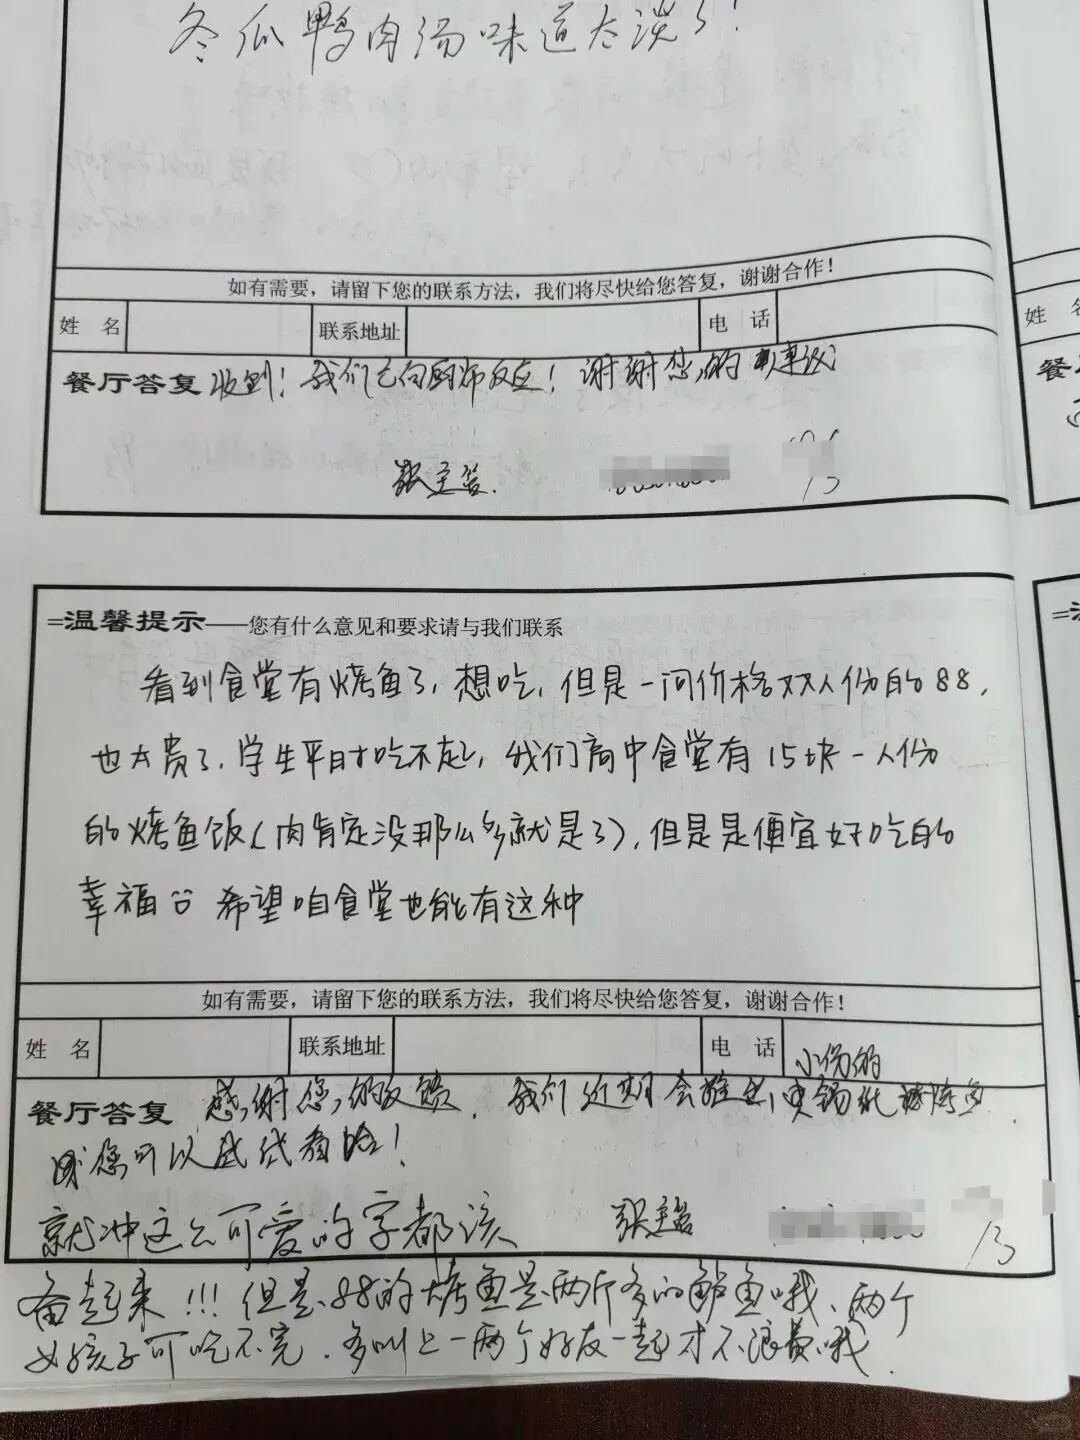 冬瓜鸭肉汤味道太淡了！
如有需要，请留下您的联系方法，我们将尽快给您答复，谢谢合作！
姓 名 联系地址 电 话
姓 名
餐厅答复 收到！我们已向厨师反应！谢谢您的建议
餐
张主管.
13
=温馨提示——您有什么意见和要求请与我们联系
看到食堂有烤鱼了，想吃，但是一问价格双人份的88，
也太贵了，学生平时吃不起，我们高中食堂有15块一人份
的烤鱼饭（肉肯定没那么多就是了），但是是便宜好吃的
幸福 希望咱食堂也能有这种
如有需要，请留下您的联系方法，我们将尽快给您答复，谢谢合作！
姓 名 联系地址 电 话
小份的
餐厅答复 感谢您的反馈，我们近期会推出 锡纸 烤鱼
您可以试试看哈！
张主管
13
就冲这么可爱的字都该
奋起来!!!但是88的烤鱼是两斤多的鲈鱼哦、两个
女孩子可吃不完．多叫上一两个好友一起才不浪费哦